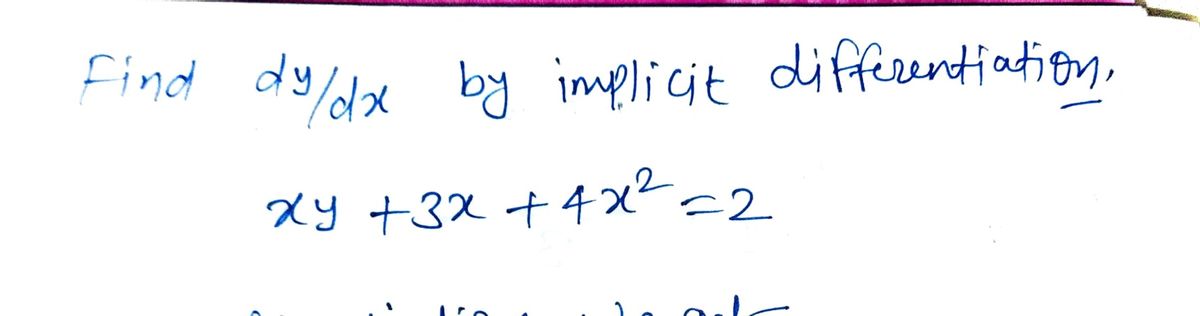 Find dy/dx by implicit differentiation.
xy + 3x + 4x² = 2